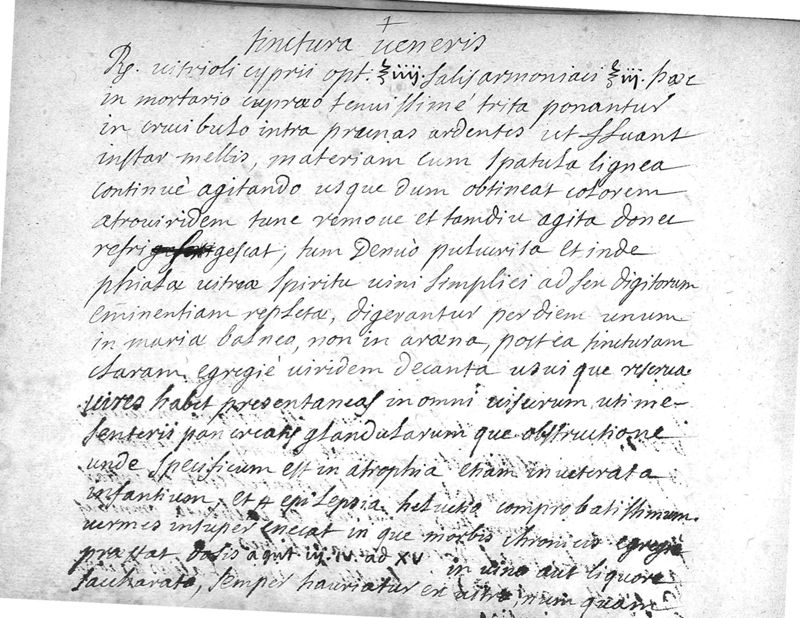 tinctura veneris
℞. vitrioli cyprii opt. ℥iiij. salis armoniaci ℥iij. hæc
in mortario cupræo tenuissime trita ponantur
in crucibulo intra prunas ardentes ut fluant
instar mellis, materiam cum spatula lignea
continuè agitando usque dum obtineat colorem
atroviridem tunc remove et tamdiu agita donec
refrigescat, tum denuò pulverisa et inde
phiala vitrea spiritu vini simplici ad sex digitorum
eminentiam repleta, digerantur per diem unum
in mariæ balneo, non in aræna, postea tincturam
claram egregiè viridem decanta usuique reserva.
vires habet presentaneas in omni viscerum, uti me-
senterii pancreatis glandularum que obstructione
unde specificum est in atrophia etiam inveterata
infantium, et epilepsia helvetia comprobatissimum.
vermes insuper enecat in que morbis chronicis egregiè
præstat. dosis a gut iij. iv. ad xv in vino aut liquore
saccharato, semper hauriatur ex vitro, nunquam